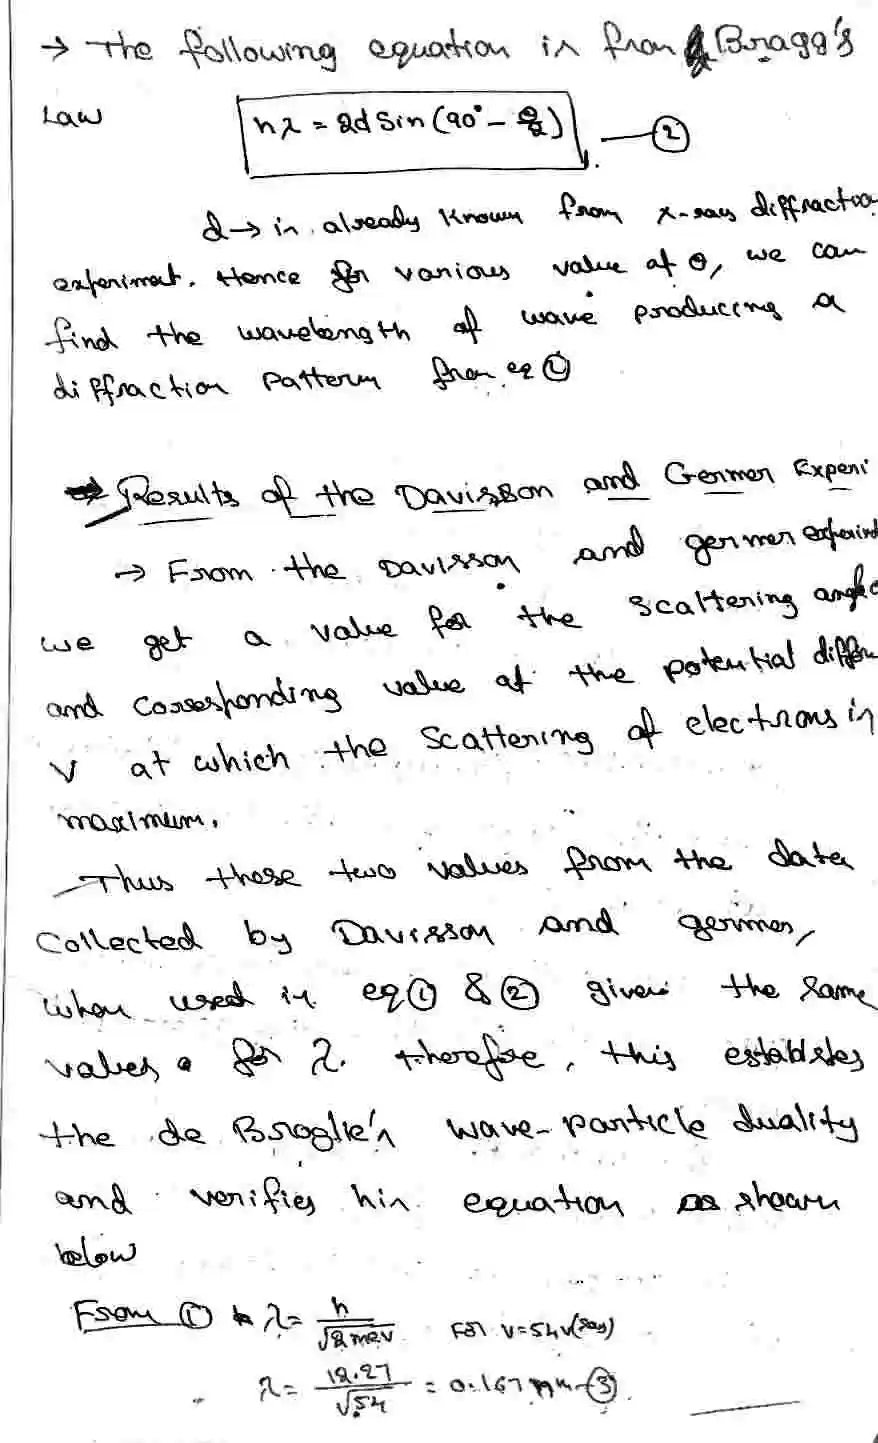 → The following equation is from Bragg's
Law nλ = 2d Sin (90° - θ/2) —②
d → is already known from x-ray diffraction
experiment. Hence for various value of θ, we can
find the wavelength of wave producing a
diffraction pattern from eq ①
Results of the Davisson and Germer Experi
→ From the Davisson and germer
we get a value for the scattering angle
and corresponding value of the potential differ
V at which the scattering of electrons is
maximum.
Thus these two values from the data
collected by Davisson and germer,
when used in eq ① & ② gives the same
values for λ. therefore, this establshes
the de Broglie's wave-particle duality
and verifies his equation as shown
below
From ① λ = h/√2mev For V=54V(say)
λ = 12.27/√54 = 0.167 nm —③